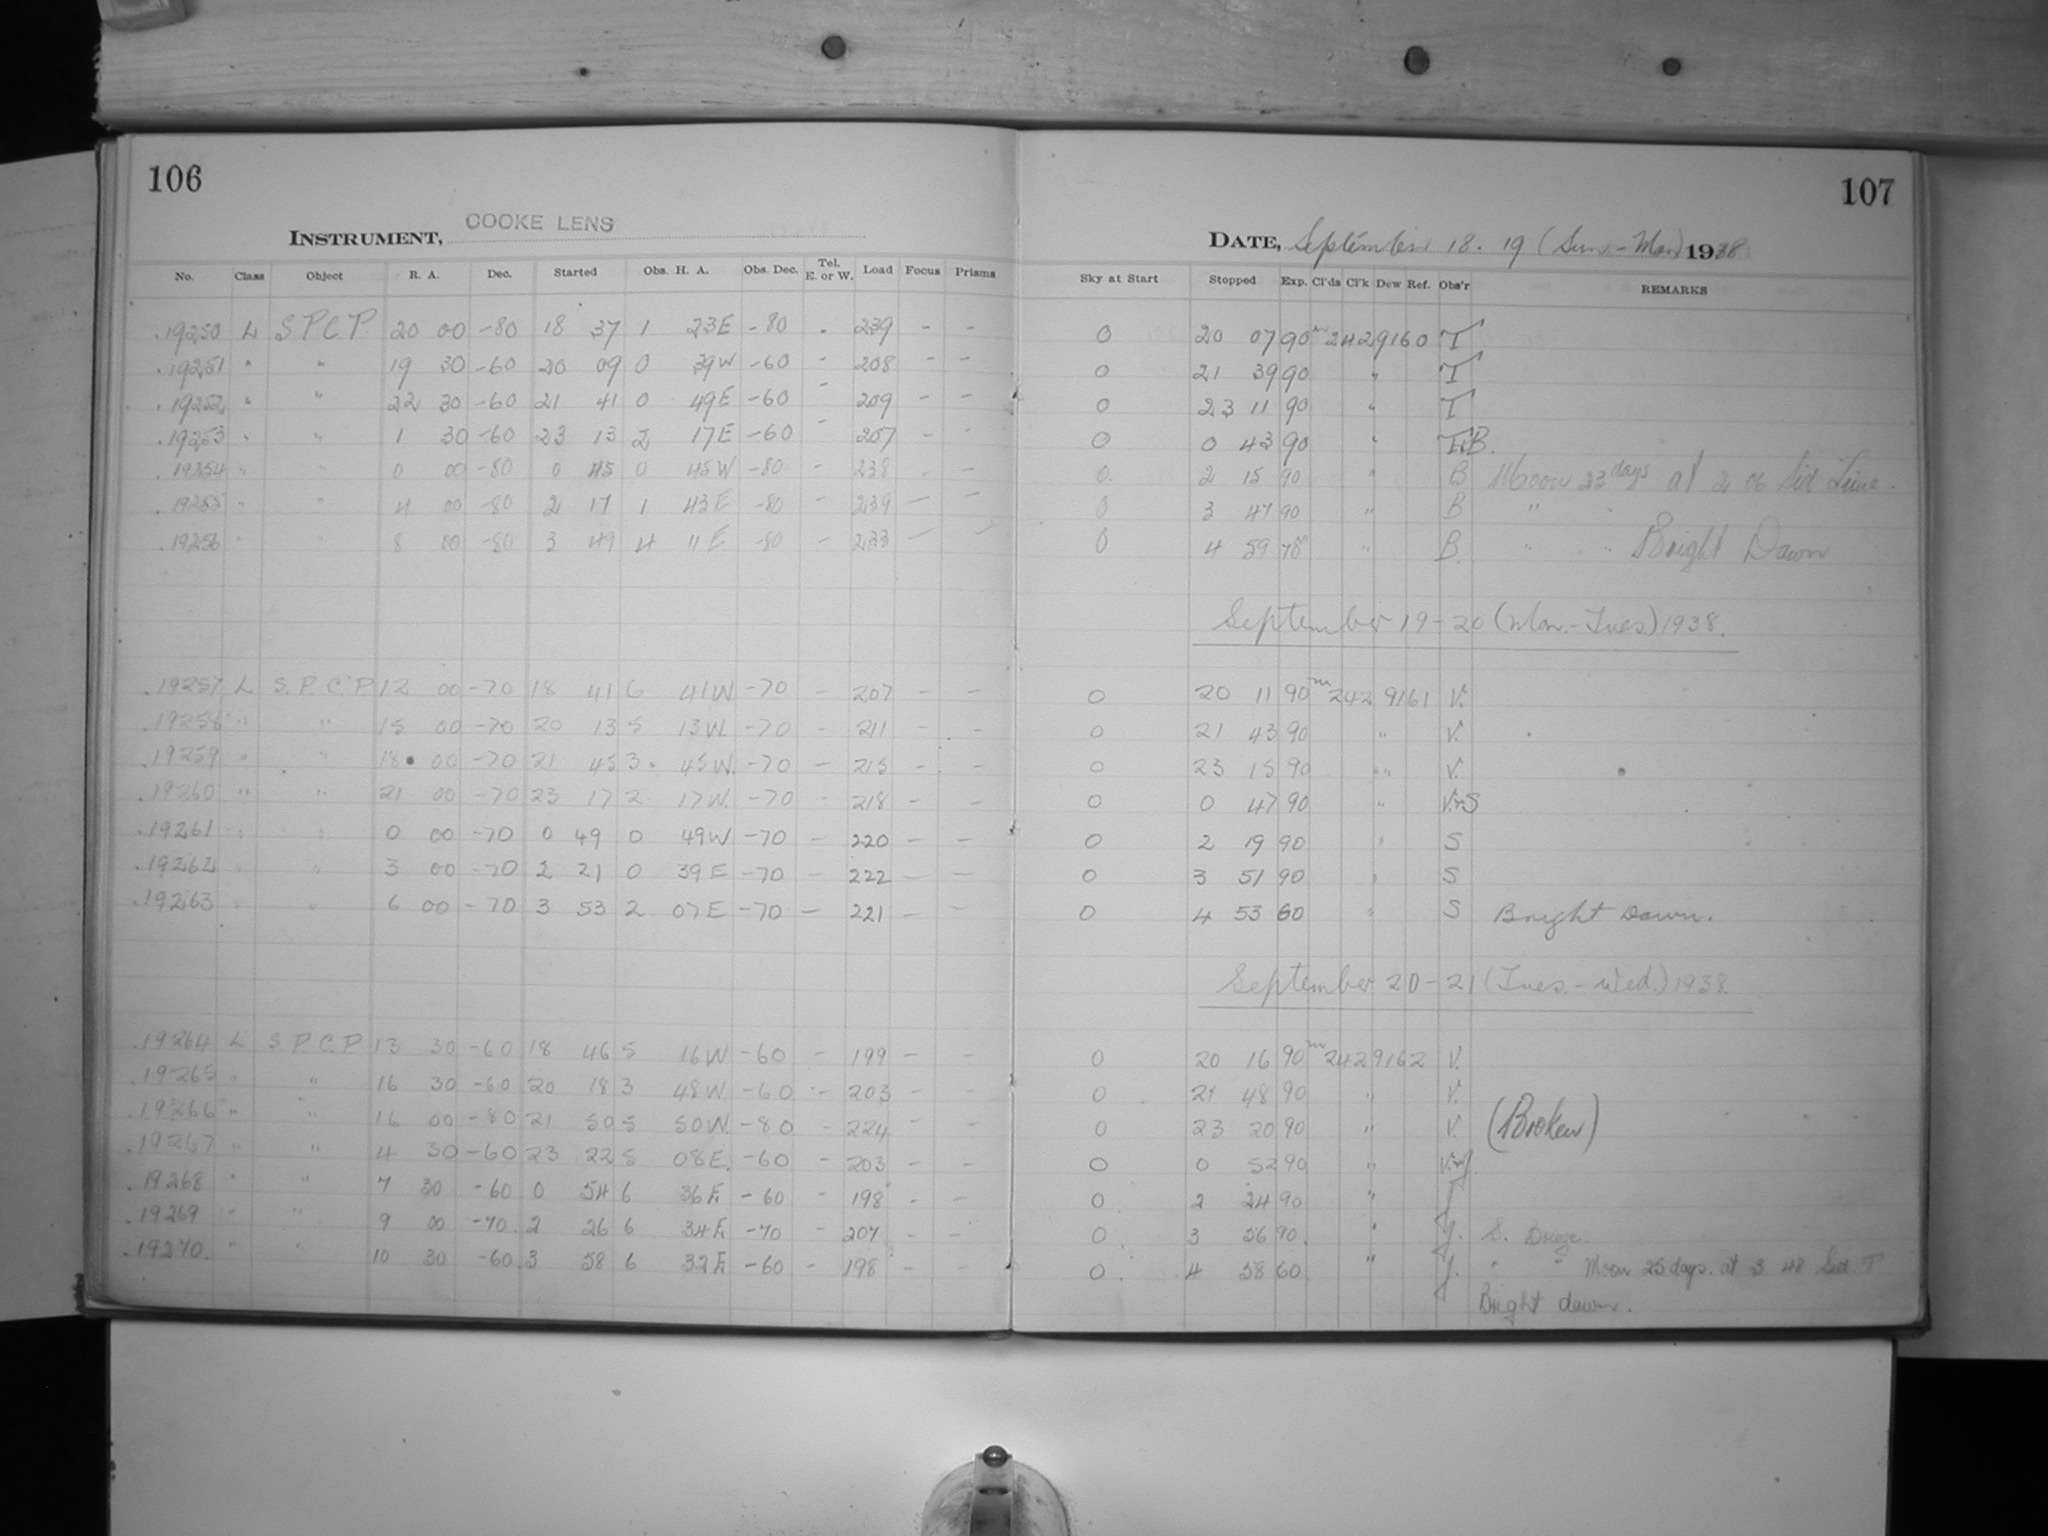 106
INSTRUMENT, COOKE LENS
No. Class Object R. A. Dec. Started Obs. H. A. Obs. Dec. Tel. E. or W. Load Focus Prisms
19250 L S P C P 20 00 -80 18 37 1 23E -80 - 239 - -
19251 " " 19 30 -60 20 09 0 39W -60 - 208 - -
19252 " " 22 30 -60 21 41 0 49E -60 - 209 - -
19253 " " 1 30 -60 23 13 2 17E -60 - 207 - -
19254 " " 0 00 -80 0 45 0 45W -80 - 238 - -
19255 " " 4 00 -80 2 17 1 43E -80 - 239 - -
19256 " " 8 00 -80 3 49 4 11E -80 - 233 - -
19257 L S. P. C. P. 12 00 -70 18 41 6 41W -70 - 207 - -
19258 " " 15 00 -70 20 13 5 13W -70 - 211 - -
19259 " " 18 00 -70 21 45 3 45W. -70 - 215 - -
19260 " " 21 00 -70 23 17 2 17W. -70 - 218 - -
19261 " " 0 00 -70 0 49 0 49W -70 - 220 - -
19262 " " 3 00 -70 2 21 0 39E -70 - 222 - -
19263 " " 6 00 -70 3 53 2 07E -70 - 221 - -
19264 L S. P. C. P. 13 30 -60 18 46 5 16W -60 - 199 - -
19265 " " 16 30 -60 20 18 3 48W. -60 - 203 - -
19266 " " 16 00 -80 21 50 5 50W. -80 - 224 - -
19267 " " 4 30 -60 23 22 5 08E. -60 - 203 - -
19268 " " 7 30 -60 0 54 6 36E -60 - 198 - -
19269 " " 9 00 -70 2 26 6 34E -70 - 207 - -
19270 " " 10 30 -60 3 58 6 32E -60 - 198 - -
107
DATE, September 18-19 (Sun-Mon) 1938
Sky at Start Stopped Exp. Cl'ds Cl'k Dew Ref. Obs'r REMARKS
0 20 07 90m 2429160 T
0 21 39 90 " T
0 23 11 90 " T
0 0 43 90 " T+B.
0. 2 15 90 " B Moon 23 days at 2 06 Sid Time.
0 3 47 90 " B "
0 4 59 70 " B. " " Bright Dawn
September 19-20 (Mon.-Tues.) 1938.
0 20 11 90m 2429161 V.
0 21 43 90 " V.
0 23 15 90 " V.
0 0 47 90 " V.+S
0 2 19 90 " S
0 3 51 90 " S
0 4 53 60 " S Bright Dawn.
September 20-21 (Tues.-Wed.) 1938
0 20 16 90m 2429162 V.
0 21 48 90 " V.
0 23 20 90 " V. (Broken)
0 0 52 90 " V.+J
0 2 24 90 " J
0 3 56 90 " J. S. Breeze.
0 4 58 60 " J. " " Moon 25 days. at 3 48 Sid. T
Bright dawn.